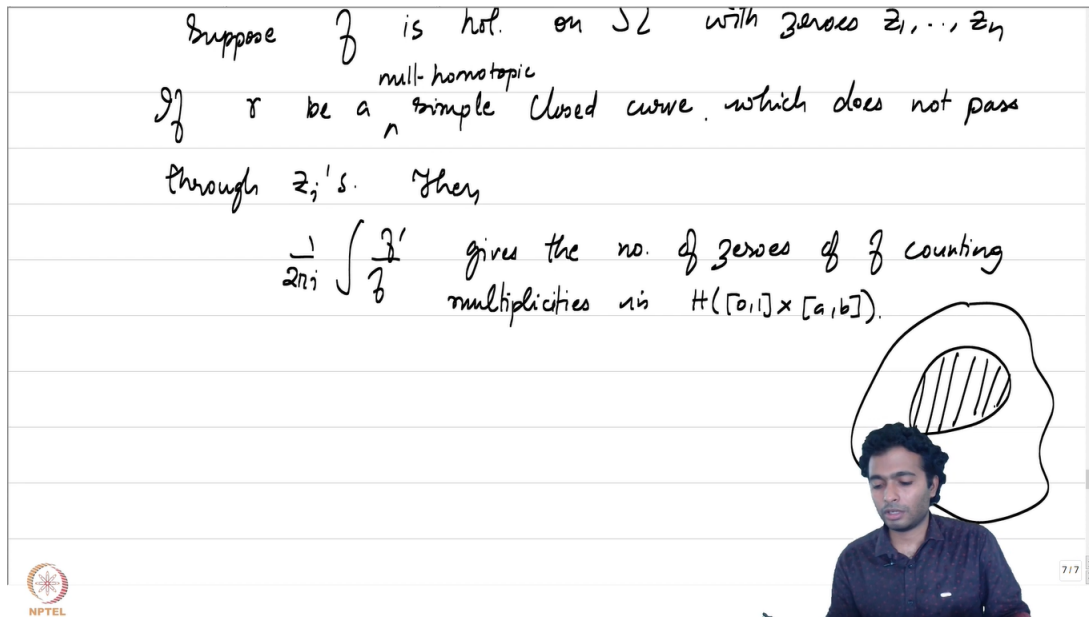 Suppose f is hol. on Ω with zeroes z₁, .., zₙ
null-homotopic
If γ be a ∧ simple closed curve. which does not pass
through zⱼ's. Then,
1/2πi ∫ f'/f gives the no. of zeroes of f counting
multiplicities in H([0,1] × [a,b]).
7/7
NPTEL